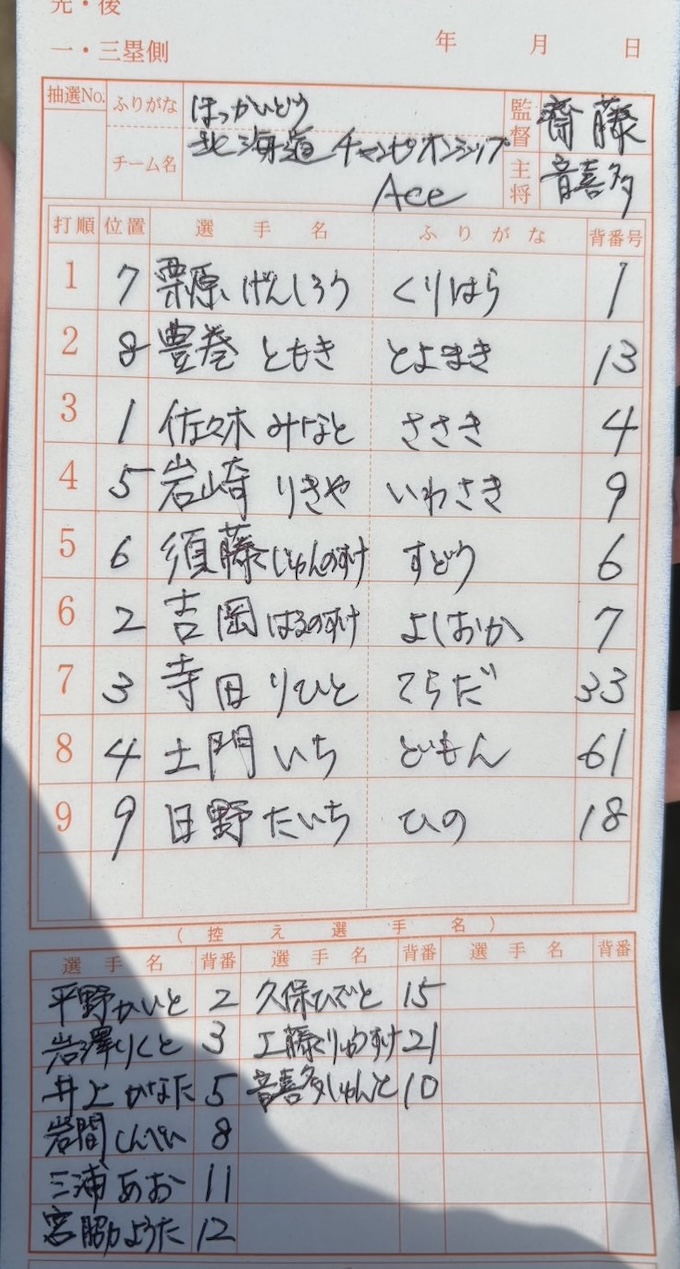 先・後
一・三塁側 年 月 日
抽選No. ふりがな ほっかいどう 監督 齋藤
チーム名 北海道チャンピオンシップ 主将 音喜多
Ace
打順 位置 選手名 ふりがな 背番号
1 7 栗原げんしろう くりはら 1
2 8 豊巻ともき とよまき 13
3 1 佐久木みなと ささき 4
4 5 岩崎りきや いわさき 9
5 6 須藤じゅんのすけ すどう 6
6 2 吉岡はるのすけ よしおか 7
7 3 寺田りひと てらだ 33
8 4 土門いち どもん 61
9 9 日野たいち ひの 18
(控え選手名)
選手名 背番 選手名 背番 選手名 背番
平野かいと 2 久保ひでと 15
岩澤りくと 3 工藤りゅうすけ 21
井上かなた 5 音喜多しゅんと 10
岩間しんぺい 8
三浦あお 11
宮脇ようた 12